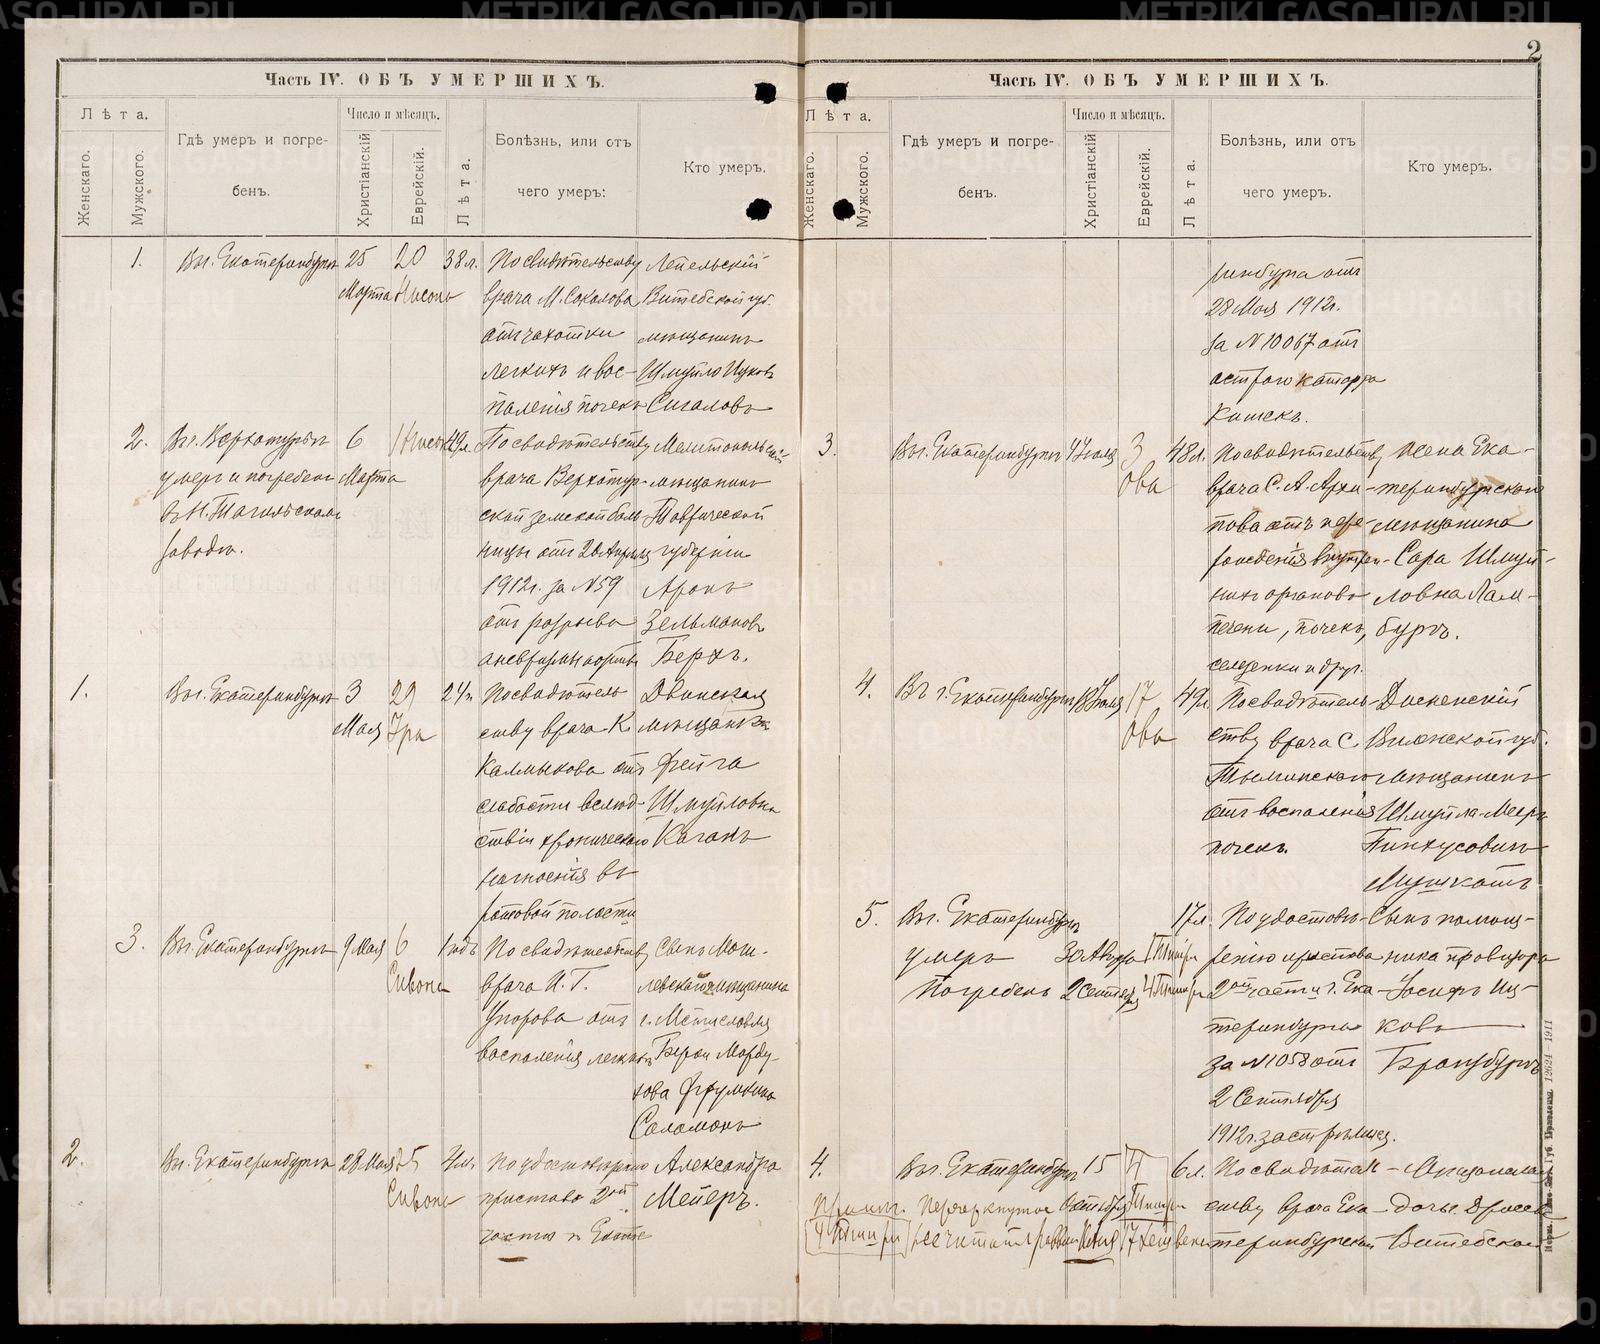 2
Часть IV. ОБЪ УМЕРШИХЪ.
Лѣта.
Женскаго.
Мужского.
Гдѣ умеръ и погре-
бенъ.
Число и мѣсяцъ.
Христіанскій
Еврейскій.
Лѣта.
Болѣзнь, или отъ
чего умеръ:
Кто умеръ.
1.
Въ г. Екатеринбургѣ
25
Марта
20
Нисонъ
38 л.
По свидѣтельству
врача М. Соколова
отъ чахотки
легкихъ и вос-
паленія почекъ
Лепельскій
Витебской губ.
мѣщанинъ
Шмуйло Ицковъ
Сигаловъ
2.
Въ г. Верхотурьѣ
умеръ и погребенъ
въ Н. Тагильскомъ
заводѣ.
6
Марта
49 л.
По свидѣтельству
врача Верхотур-
ской земской боль
ницы отъ 20 Апрѣля
1912 г. за № 59
отъ разрыва
аневризмы аорты
Мелитопольскій
мѣщанинъ
Таврической
губерніи
Аронъ
Зельмановъ
Берхъ.
1.
Въ г. Екатеринбургѣ
3
Мая
29
Іра
24 л.
По свидѣтель
ству врача К.
Калмыкова отъ
слабости вслѣд-
ствіи хроническаго
нагноенія въ
ротовой полости
Двинская
мѣщанка
Фейга
Шмуйловна
Каганъ
3.
Въ г. Екатеринбургѣ
9 Мая
6
Сивона
1 годъ
По свидѣтельству
врача И. Г.
Упорова отъ
воспаленія легкихъ
Сынъ Моги-
левскаго мѣщанина
г. Мстиславля
Берки Морду-
хова Фрумкина
Саломонъ
2.
Въ г. Екатеринбургѣ
28 Мая
25
Сивона
По удостовѣренію
пристава 2ой
части г. Екате
Александра
Мейеръ.
Часть IV. ОБЪ УМЕРШИХЪ.
Лѣта.
Женскаго.
Мужского.
Гдѣ умеръ и погре-
бенъ.
Число и мѣсяцъ.
Христіанскій
Еврейскій.
Лѣта.
Болѣзнь, или отъ
чего умеръ.
Кто умеръ.
ринбурга отъ
28 Мая 1912 г.
за № 10067 отъ
остраго катарра
кишекъ.
3.
Въ г. Екатеринбургѣ
4 Іюля
3
Ова
48 л.
По свидѣтельству
врача С. А. Архи-
пова отъ пере-
рожденія внутрен-
нихъ органовъ
печени, почекъ,
селезенки и друг.
Жена Ека-
теринбургскаго
мѣщанина
Сара Шмуй-
ловна Лам-
бургъ.
4.
Въ г. Екатеринбургѣ
18 Іюля
17
Ова
49 л.
По свидѣтель
ству врача С.
отъ воспаленія
почекъ.
Дисненскій
Виленской губ.
мѣщанинъ
Шмуйла-Мееръ
Пинхусовичъ
Мушкатъ
5.
Въ г. Екатеринбургѣ
умеръ
Погребенъ
30 Августа
2 Сентября
17 л.
По удостовѣ-
ренію пристава
2ой части г. Ека
теринбурга
за № 1058 отъ
2 Сентября
1912 г. застрѣлился.
Сынъ помощ-
ника провизора
Іосифъ Иц-
ковъ
Бранзбургъ
4.
Въ г. Екатеринбургѣ
15
Октября
4
Тишри
6 л.
По свидѣтель-
ству врача Ека
теринбургской
дочь Дриссен
Витебской
Примѣч. Перечеркнутое
4 Тишри
не считать
17 Хешвенъ
12624 - 1911
METRIKI.GASO-URAL.RU